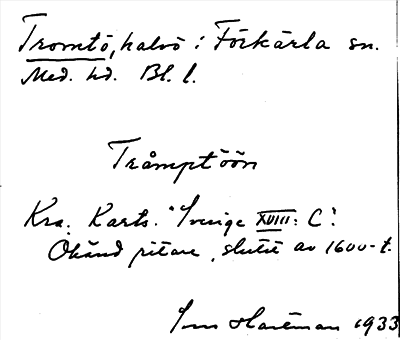 Tromtö, halvö i Förkärla sn.
Med. hd. Bl. l.
Tråmptöön
Kra. Karts. Sverige XVIII: C:
Okänd ritare, slutet av 1600-t.
Hartman 1933